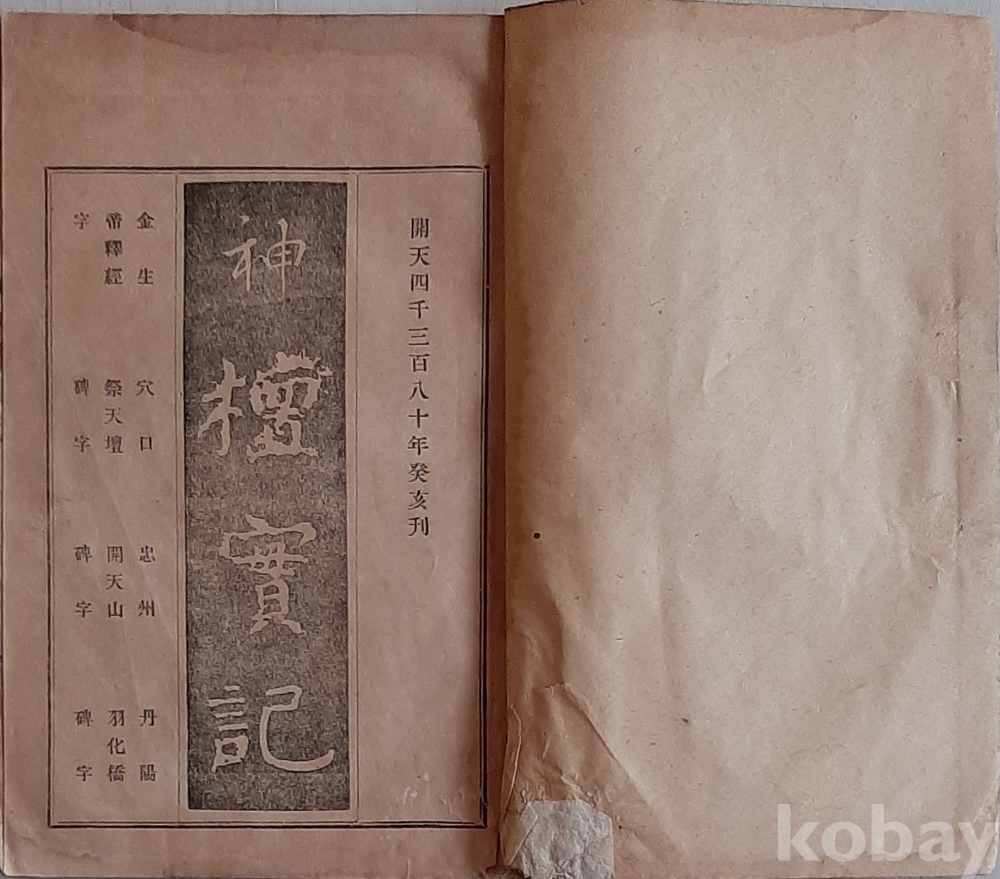 開天四千三百八十年癸亥刊
神檀實記
金生 穴口 忠州 丹陽
帝釋經 祭天壇 開天山 羽化橋
字 碑字 碑字 碑字
kobay